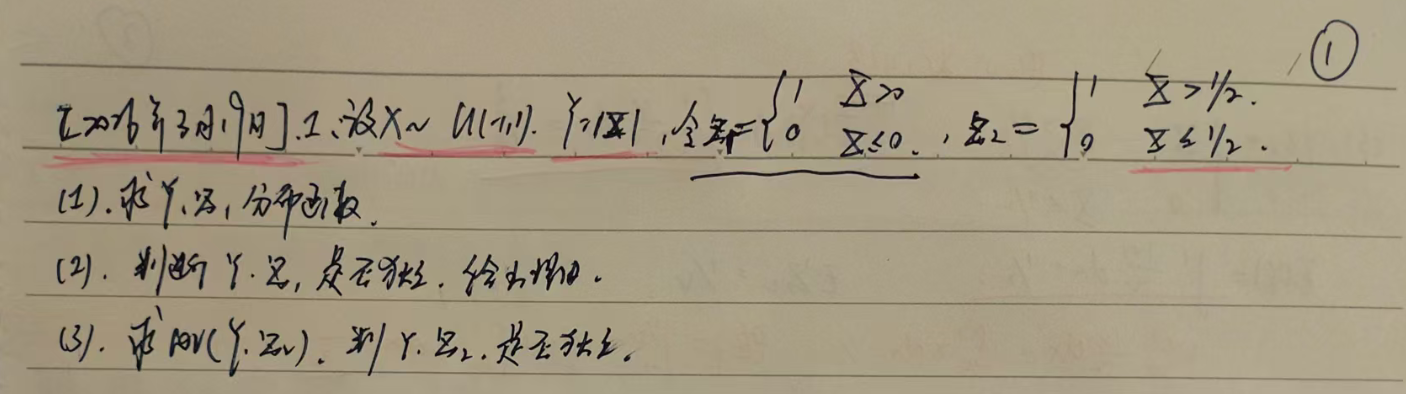 ①
[2026年3月19日].1.设X~U(-1,1). Y=|X|,令Z₁={1 X>0 0 X≤0.,Z₂={1 X>1/2. 0 X≤1/2.
(1).求Y、Z₁分布函数.
(2).判断Y.Z₁是否独立.给出理由.
(3).求cov(Y.Z₂).判Y.Z₂.是否独立.